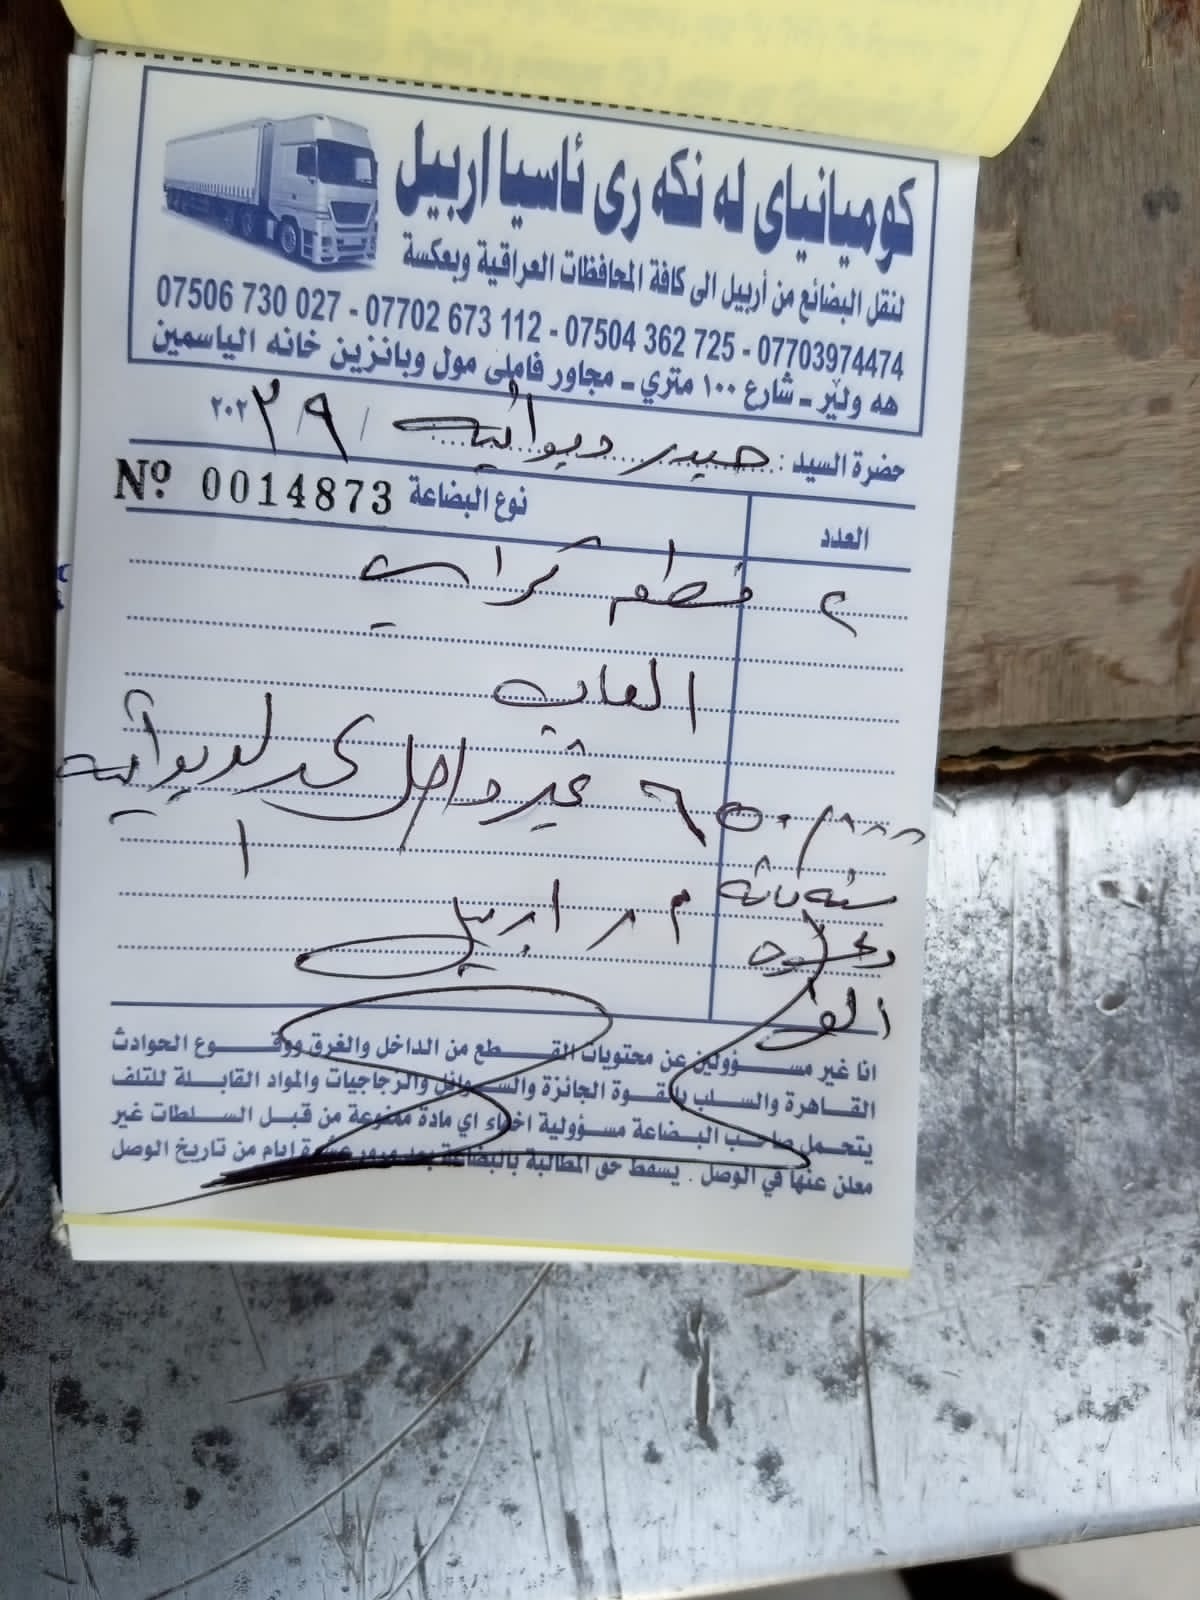 كومپانياى له نكه رى ئاسيا اربيل
لنقل البضائع من أربيل الى كافة المحافظات العراقية وبعكسة
07506 730 027 - 07702 673 112 - 07504 362 725 - 07703974474
هه ولێر ـ شارع ١٠٠ متري ـ مجاور فاملي مول وبانزين خانه الياسمين
حضرة السيد : حيدر ديوانيه / ٩ / ٢٠٢٣
العدد نوع البضاعة Nº 0014873
٢ قطع
العاب
غير داخل
اربيل
الف
انا غير مسؤولين عن محتويات القطع من الداخل والغرق ووقوع الحوادث
القاهرة والسلب بالقوة الجائزة والسوائل والزجاجيات والمواد القابلة للتلف
يتحمل صاحب البضاعة مسؤولية اخفاء اي مادة ممنوعة من قبل السلطات غير
معلن عنها في الوصل . يسقط حق المطالبة بالبضاعة بعد مرور عشرة ايام من تاريخ الوصل